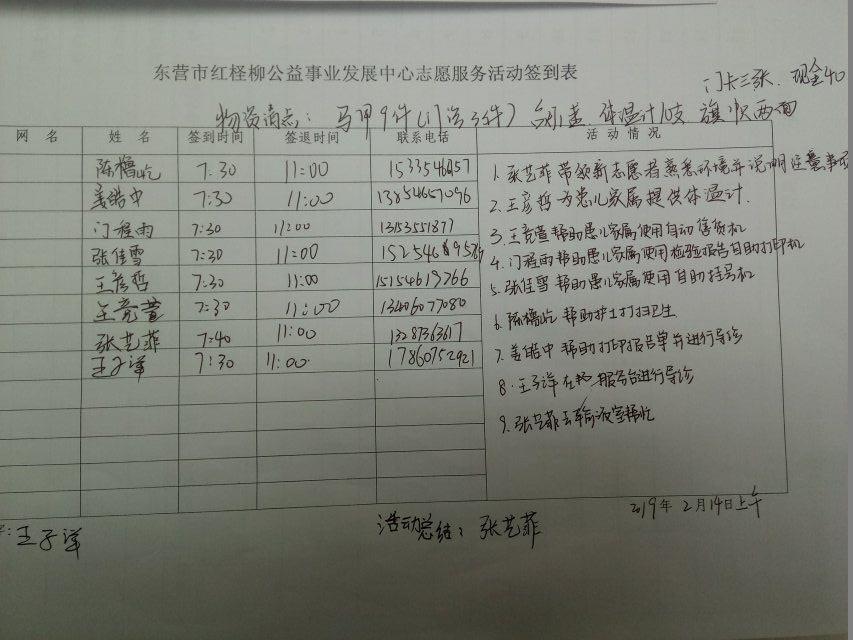 东营市红柽柳公益事业发展中心志愿服务活动签到表
门卡三张、现金40
物资清点：马甲9件 体温计
网 名 姓 名 签到时间 签退时间 联系电话 活 动 情 况
陈橹屹 7:30 11:00
姜皓中 7:30 11:00 13854657096
门程雨 7:30 11:00 13153551877
张佳雪 7:30 11:00
王彦哲 7:30 11:00 15154619766
王竞萱 7:30 11:00 13406077080
张艺菲 7:40 11:00 13287363617
王子洋 7:30 11:00 17860752921
1. 张艺菲带领新志愿者熟悉环境并说明注意事项
2. 王彦哲为患儿家属提供体温计.
3. 王竞萱帮助患儿家属使用自动售货机
4. 门程雨帮助患儿家属使用检验报告自助打印机
5. 张佳雪帮助患儿家属使用自助挂号机
6. 陈橹屹帮助护士打扫卫生
7. 姜皓中帮助打印报告单并进行导诊
8. 王子洋在 服务台进行导诊
9. 张艺菲去输液室
2019年2月14日上午
王子洋
活动总结：张艺菲